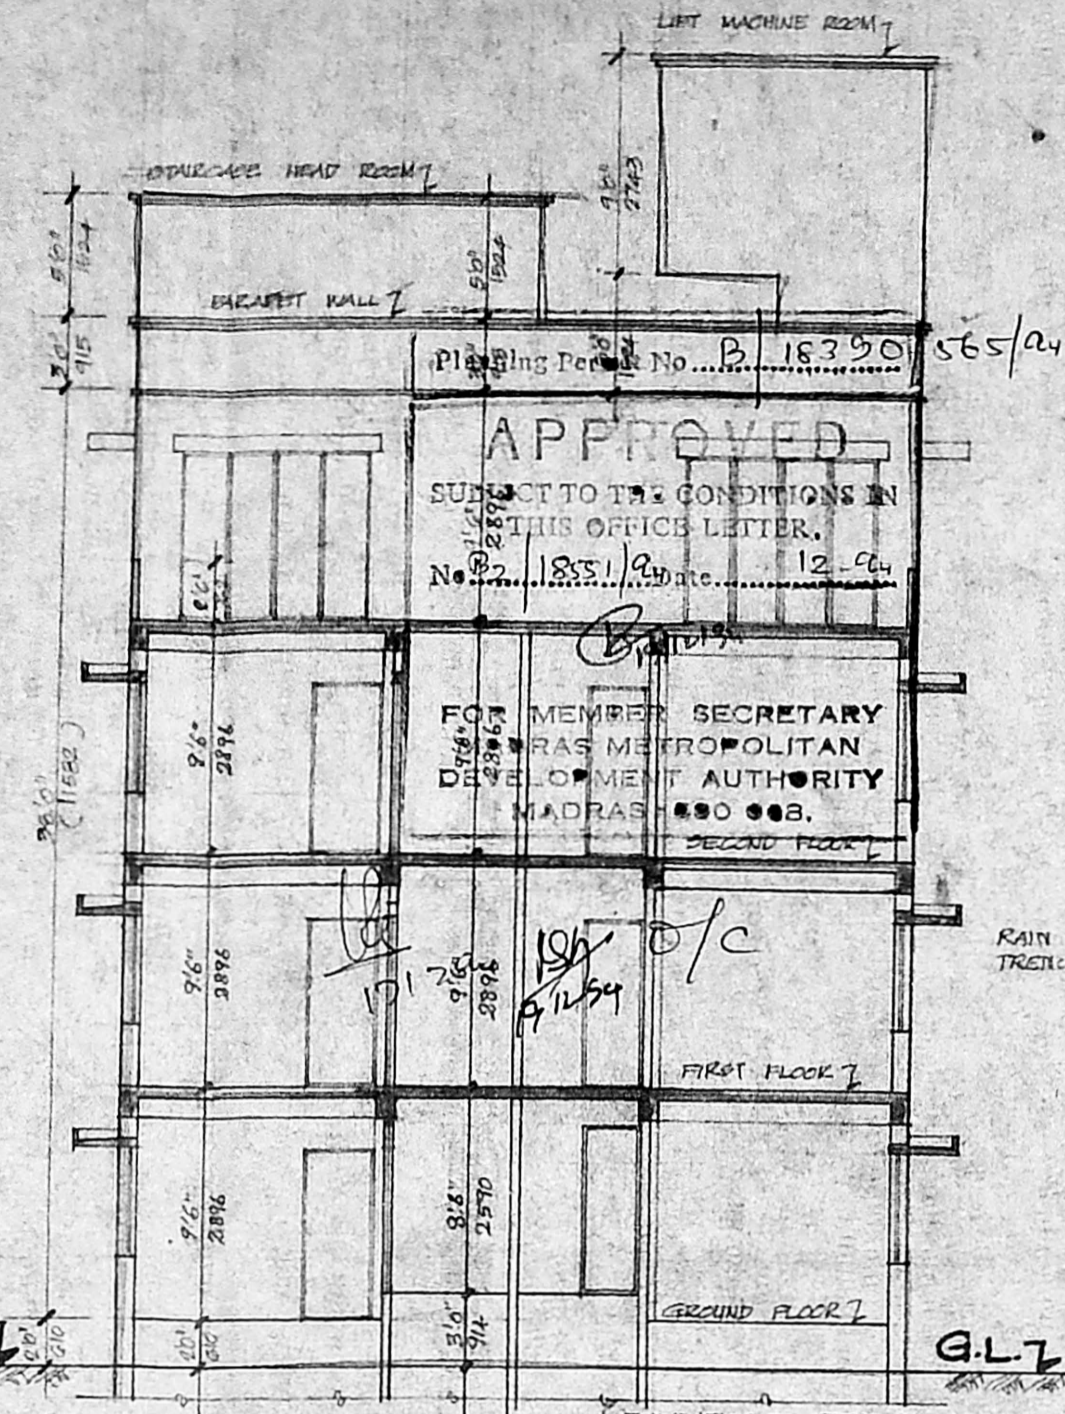 LIFT MACHINE ROOM
STAIRCASE HEAD ROOM
9'0"
2743
5'0"
1524
5'0"
1524
PARAPET WALL
3'0"
915
Planning Permit No. B/18390/565/94
APPROVED
SUBJECT TO THE CONDITIONS IN
THIS OFFICE LETTER.
No. B2/18551/94 Date 12-94
2896
38'0"
(11582)
FOR MEMBER SECRETARY
MADRAS METROPOLITAN
DEVELOPMENT AUTHORITY
MADRAS-600 008.
9'6"
2896
9'6"
2896
SECOND FLOOR
O/C
9'6"
2896
9'6"
2896
RAIN
FIRST FLOOR
9'6"
2896
8'6"
2590
GROUND FLOOR
3'0"
914
2'0"
610
2'0"
610
G.L.